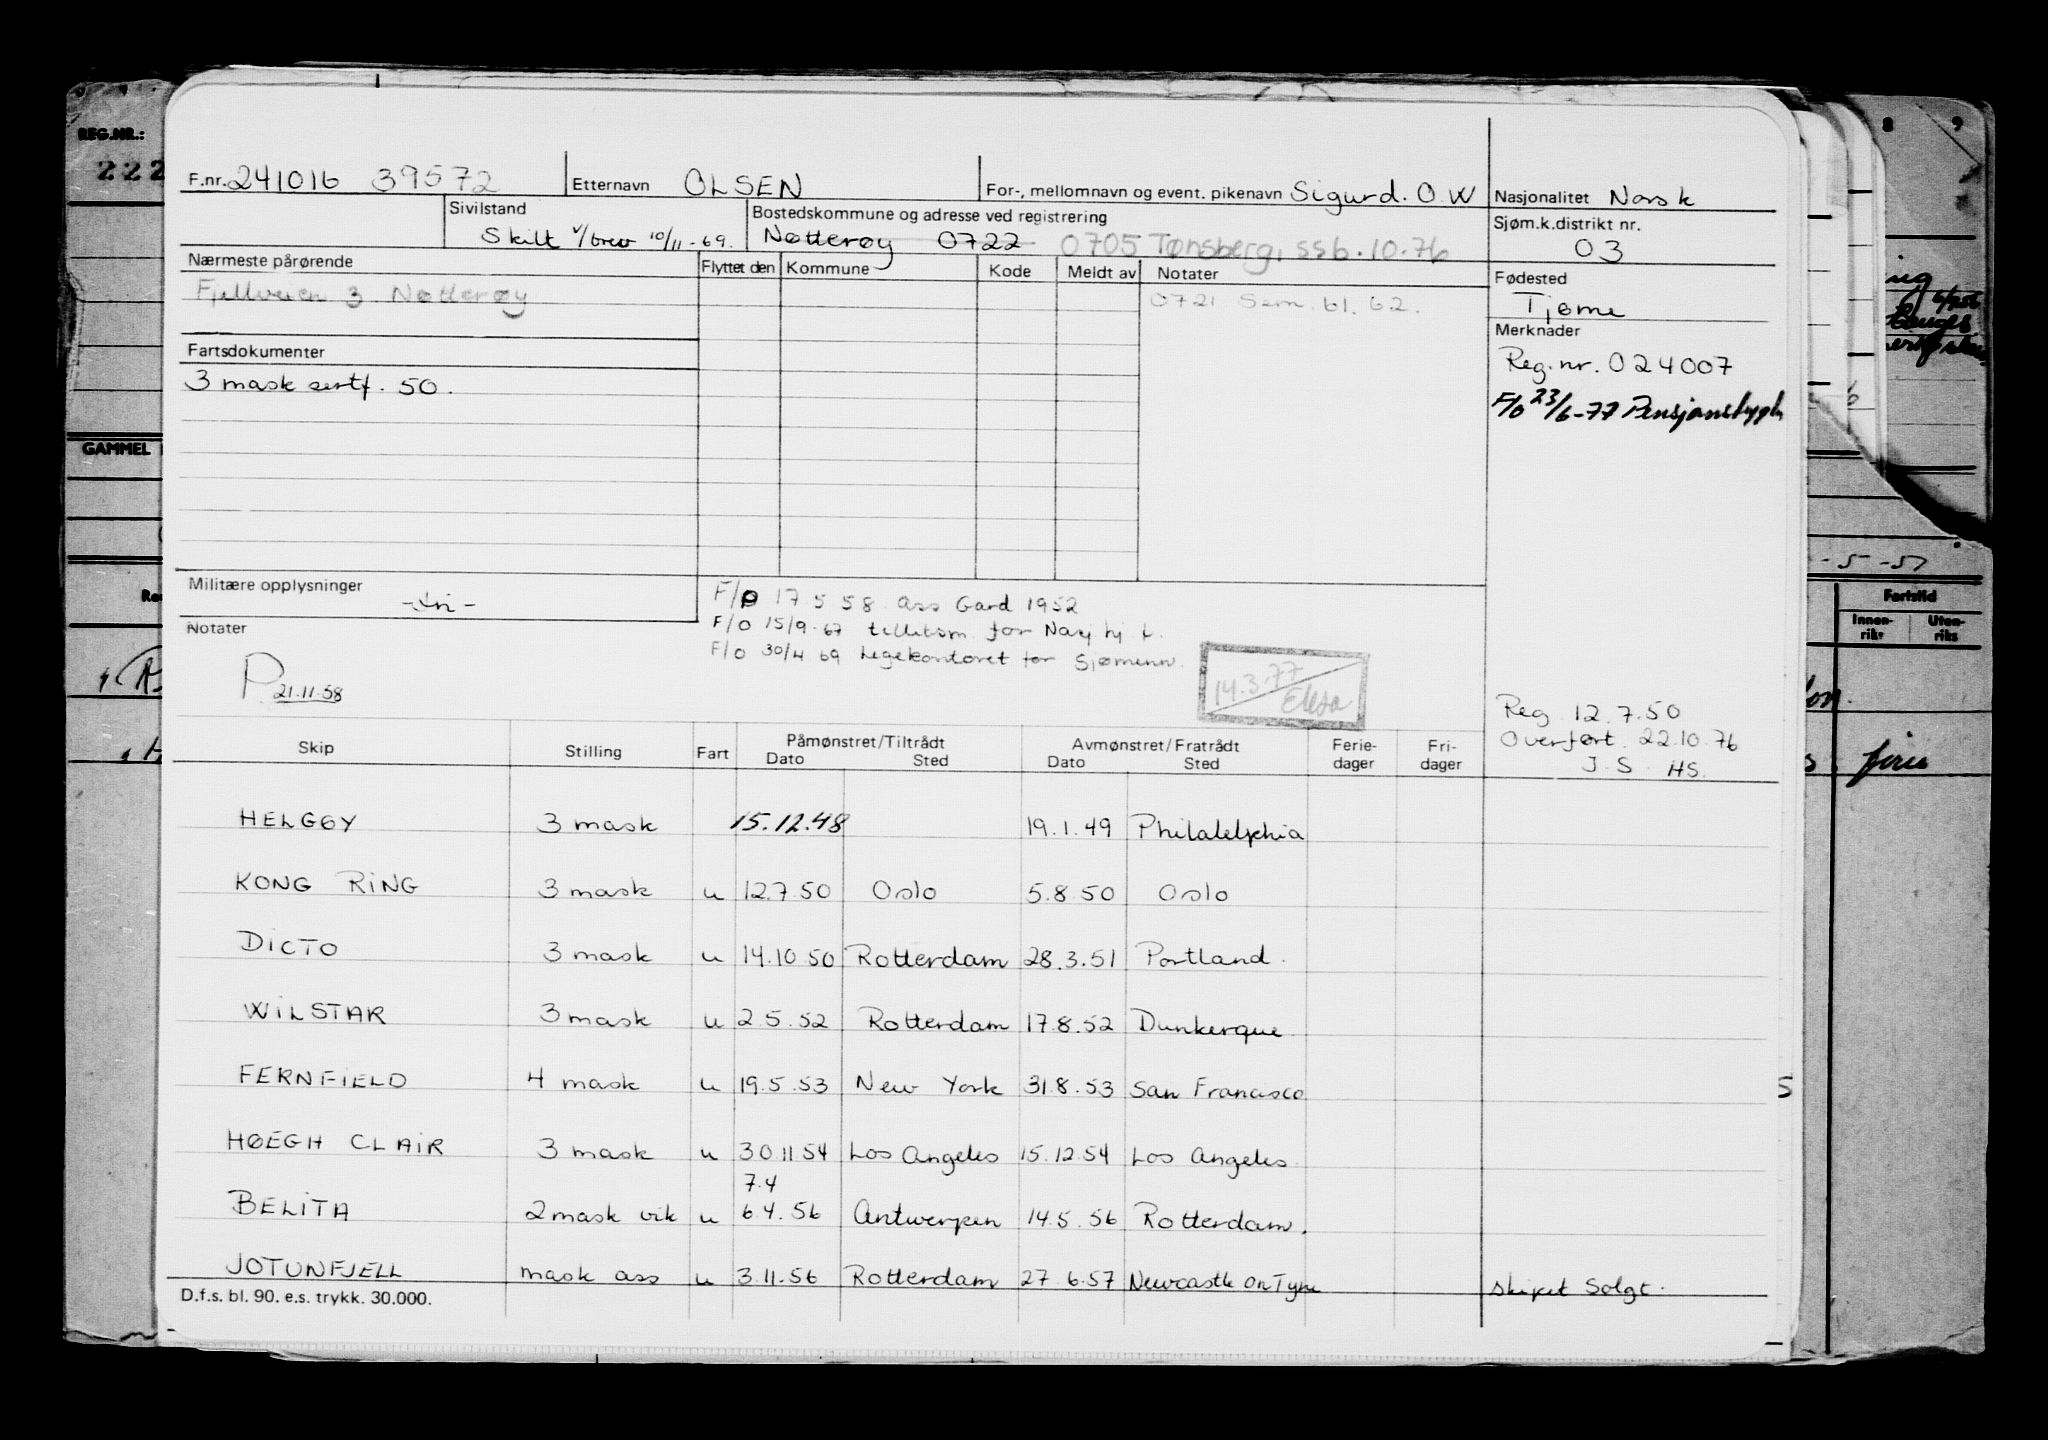 REG.NR.:
222
8 9
F.nr. 241016 39572 Etternavn OLSEN For-, mellomnavn og event. pikenavn Sigurd. O W Nasjonalitet Norsk
Sivilstand Skilt v/brev 10/11-69. Bostedskommune og adresse ved registrering Nøtterøy 0722 0705 Tønsberg, ssb. 10-76 Sjøm.k.distrikt nr. 03
Nærmeste pårørende Flyttet den Kommune Kode Meldt av Notater Fødested
Fjellveien 3 Nøtterøy 0721 Sem. bl. 62. Tjøme
Merknader
Fartsdokumenter Reg.nr. 024007
3 mask sertf. 50. F/o 23/6-77
GAMMEL
-5-57
Militære opplysninger
F/o 17 5 58 ass Gard 1952
Fartstid
Notater F/o 15/9-67 tillitsm. for Nav hj t.
Innen-riks Uten-riks
F/o 30/4 69 Legekontoret for Sjømenn.
P. 21.11.58 14.3.77 Elesa
Reg 12.7.50
Overført 22.10.76
J.S. HS.
Skip Stilling Fart Påmønstret/Tiltrådt Avmønstret/Fratrådt Ferie-dager Fri-dager
Dato Sted Dato Sted
HELGØY 3 mask 15.12.48 19.1.49 Philalelphia
KONG RING 3 mask u 12.7.50 Oslo 5.8.50 Oslo
DICTO 3 mask u 14.10.50 Rotterdam 28.3.51 Portland.
WILSTAR 3 mask u 2.5.52 Rotterdam 17.8.52 Dunkerque.
FERNFIELD 4 mask u 19.5.53 New York 31.8.53 San Francisco
HØEGH CLAIR 3 mask u 30.11.54 Los Angeles 15.12.54 Los Angeles.
7.4
BELITA 2 mask vik u 6.4.56 Antwerpen 14.5.56 Rotterdam.
JOTUNFJELL mask ass u 3.11.56 Rotterdam 27.6.57 Newcastle on Tyne skipet solgt.
D.f.s. bl. 90. e.s. trykk. 30.000.